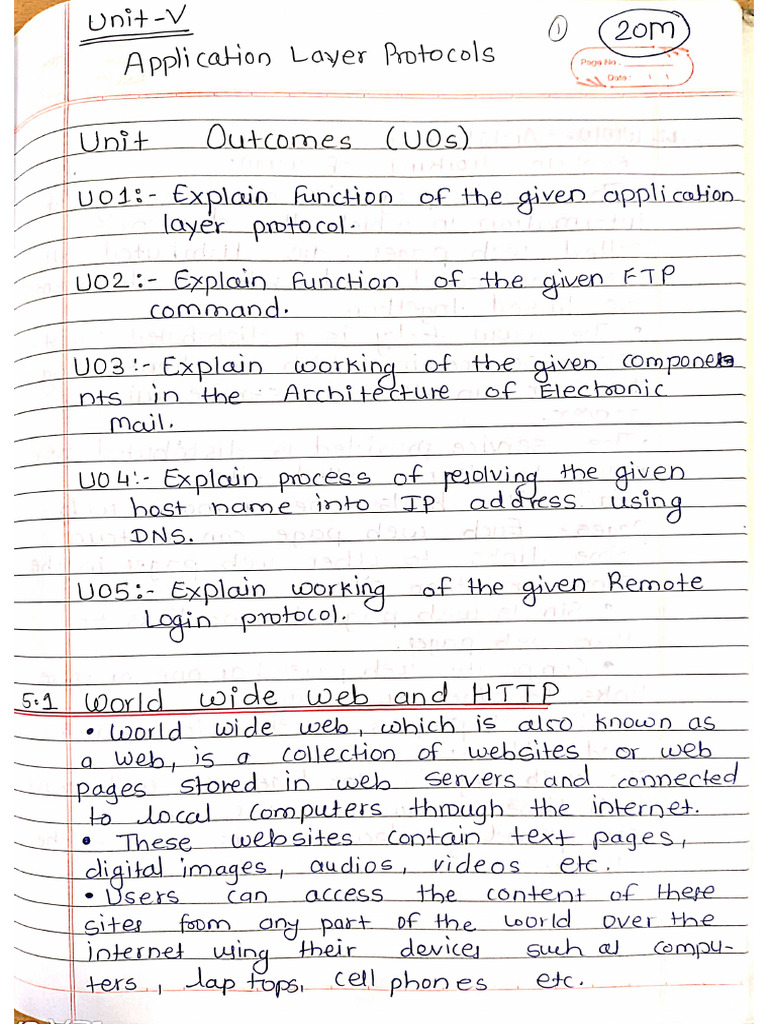 Unit-V
① 20M
Application Layer Protocols
Page No.
Date: / /
Unit Outcomes (UOs)
UO1:- Explain function of the given application
layer protocol.
UO2:- Explain function of the given FTP
command.
UO3:- Explain working of the given compone
nts in the Architecture of Electronic
Mail.
UO4:- Explain process of resolving the given
host name into IP address using
DNS.
UO5:- Explain working of the given Remote
Login protocol.
5.1 World wide web and HTTP
• World wide web, which is also known as
a web, is a collection of websites or web
pages stored in web servers and connected
to local computers through the internet.
• These websites contain text pages,
digital images, audios, videos etc.
• Users can access the content of these
sites from any part of the world over the
internet using their devices such as compu-
ters, lap tops, cell phones etc.